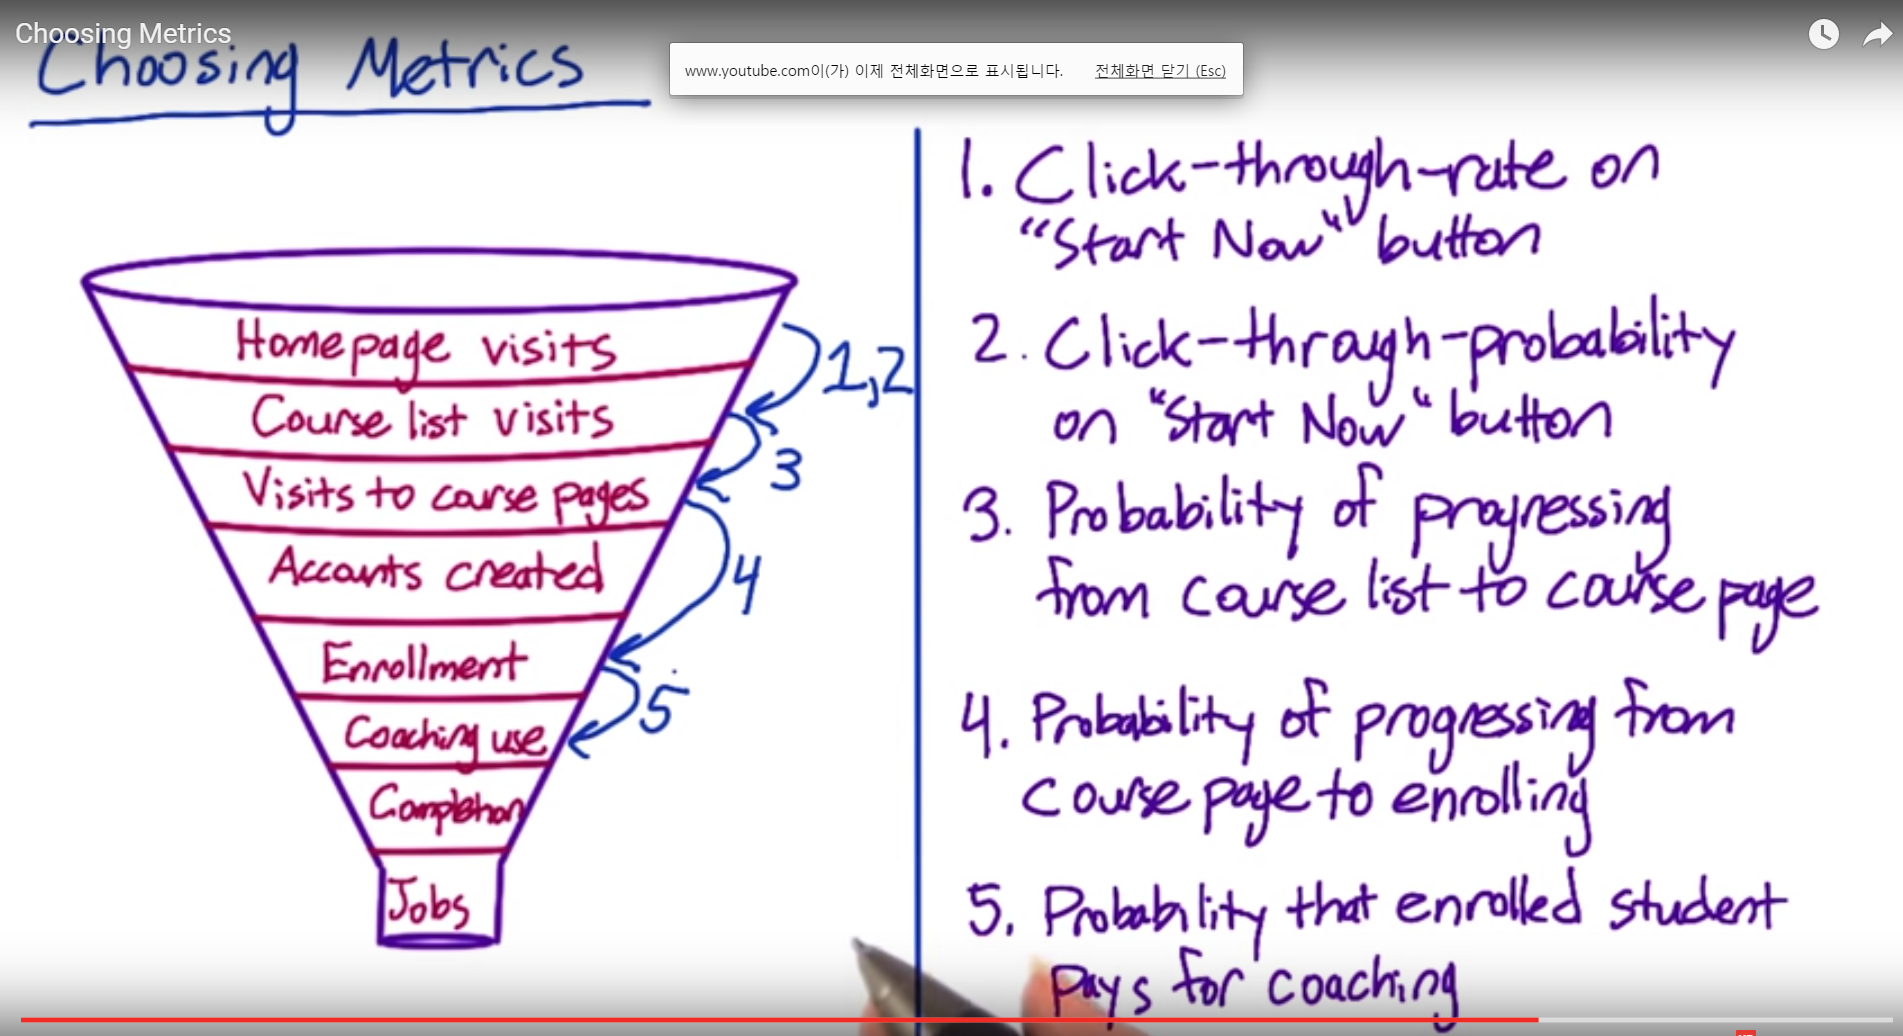 Choosing Metrics
Choosing Metrics
www.youtube.com이(가) 이제 전체화면으로 표시됩니다. 전체화면 닫기 (Esc)
Homepage visits
Course list visits
Visits to course pages
Accounts created
Enrollment
Coaching use
Completion
Jobs
1,2
3
4
5
1. Click-through-rate on
"Start Now" button
2. Click-through-probability
on "Start Now" button
3. Probability of progressing
from course list to course page
4. Probability of progressing from
course page to enrolling
5. Probability that enrolled student
pays for coaching